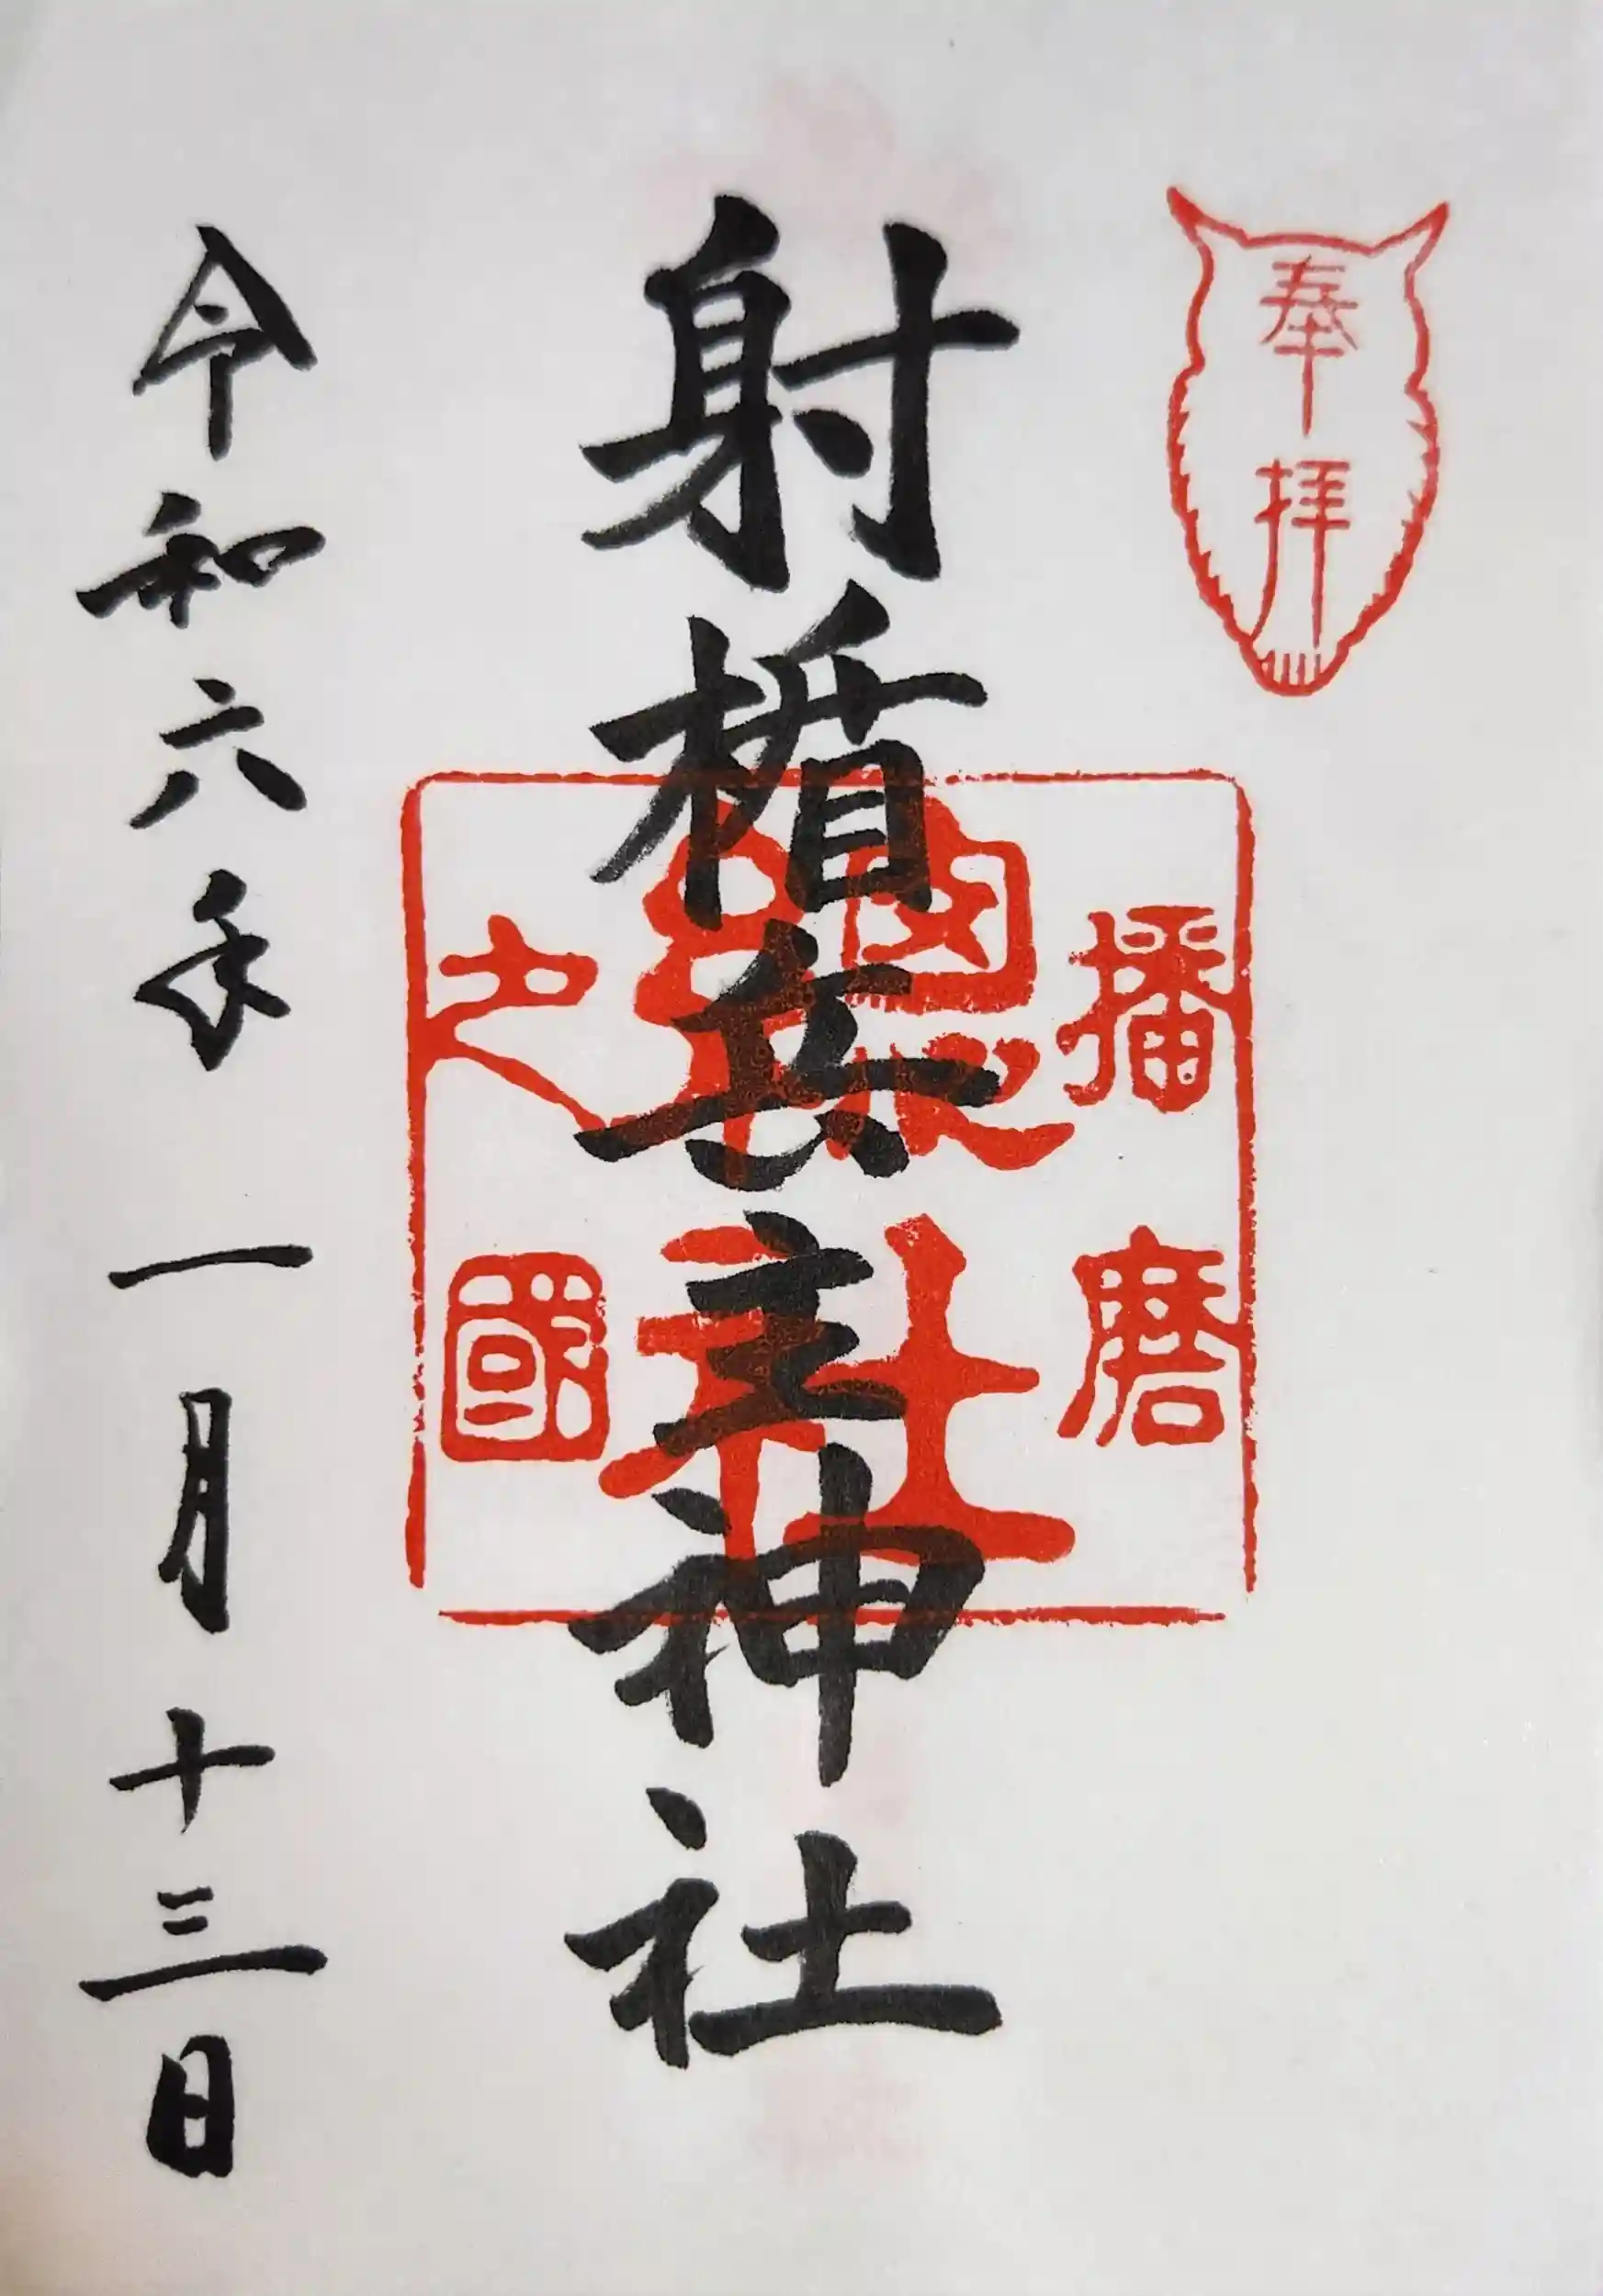 奉拝
射楯兵主神社
播磨
總社
之國
令和六年一月十三日